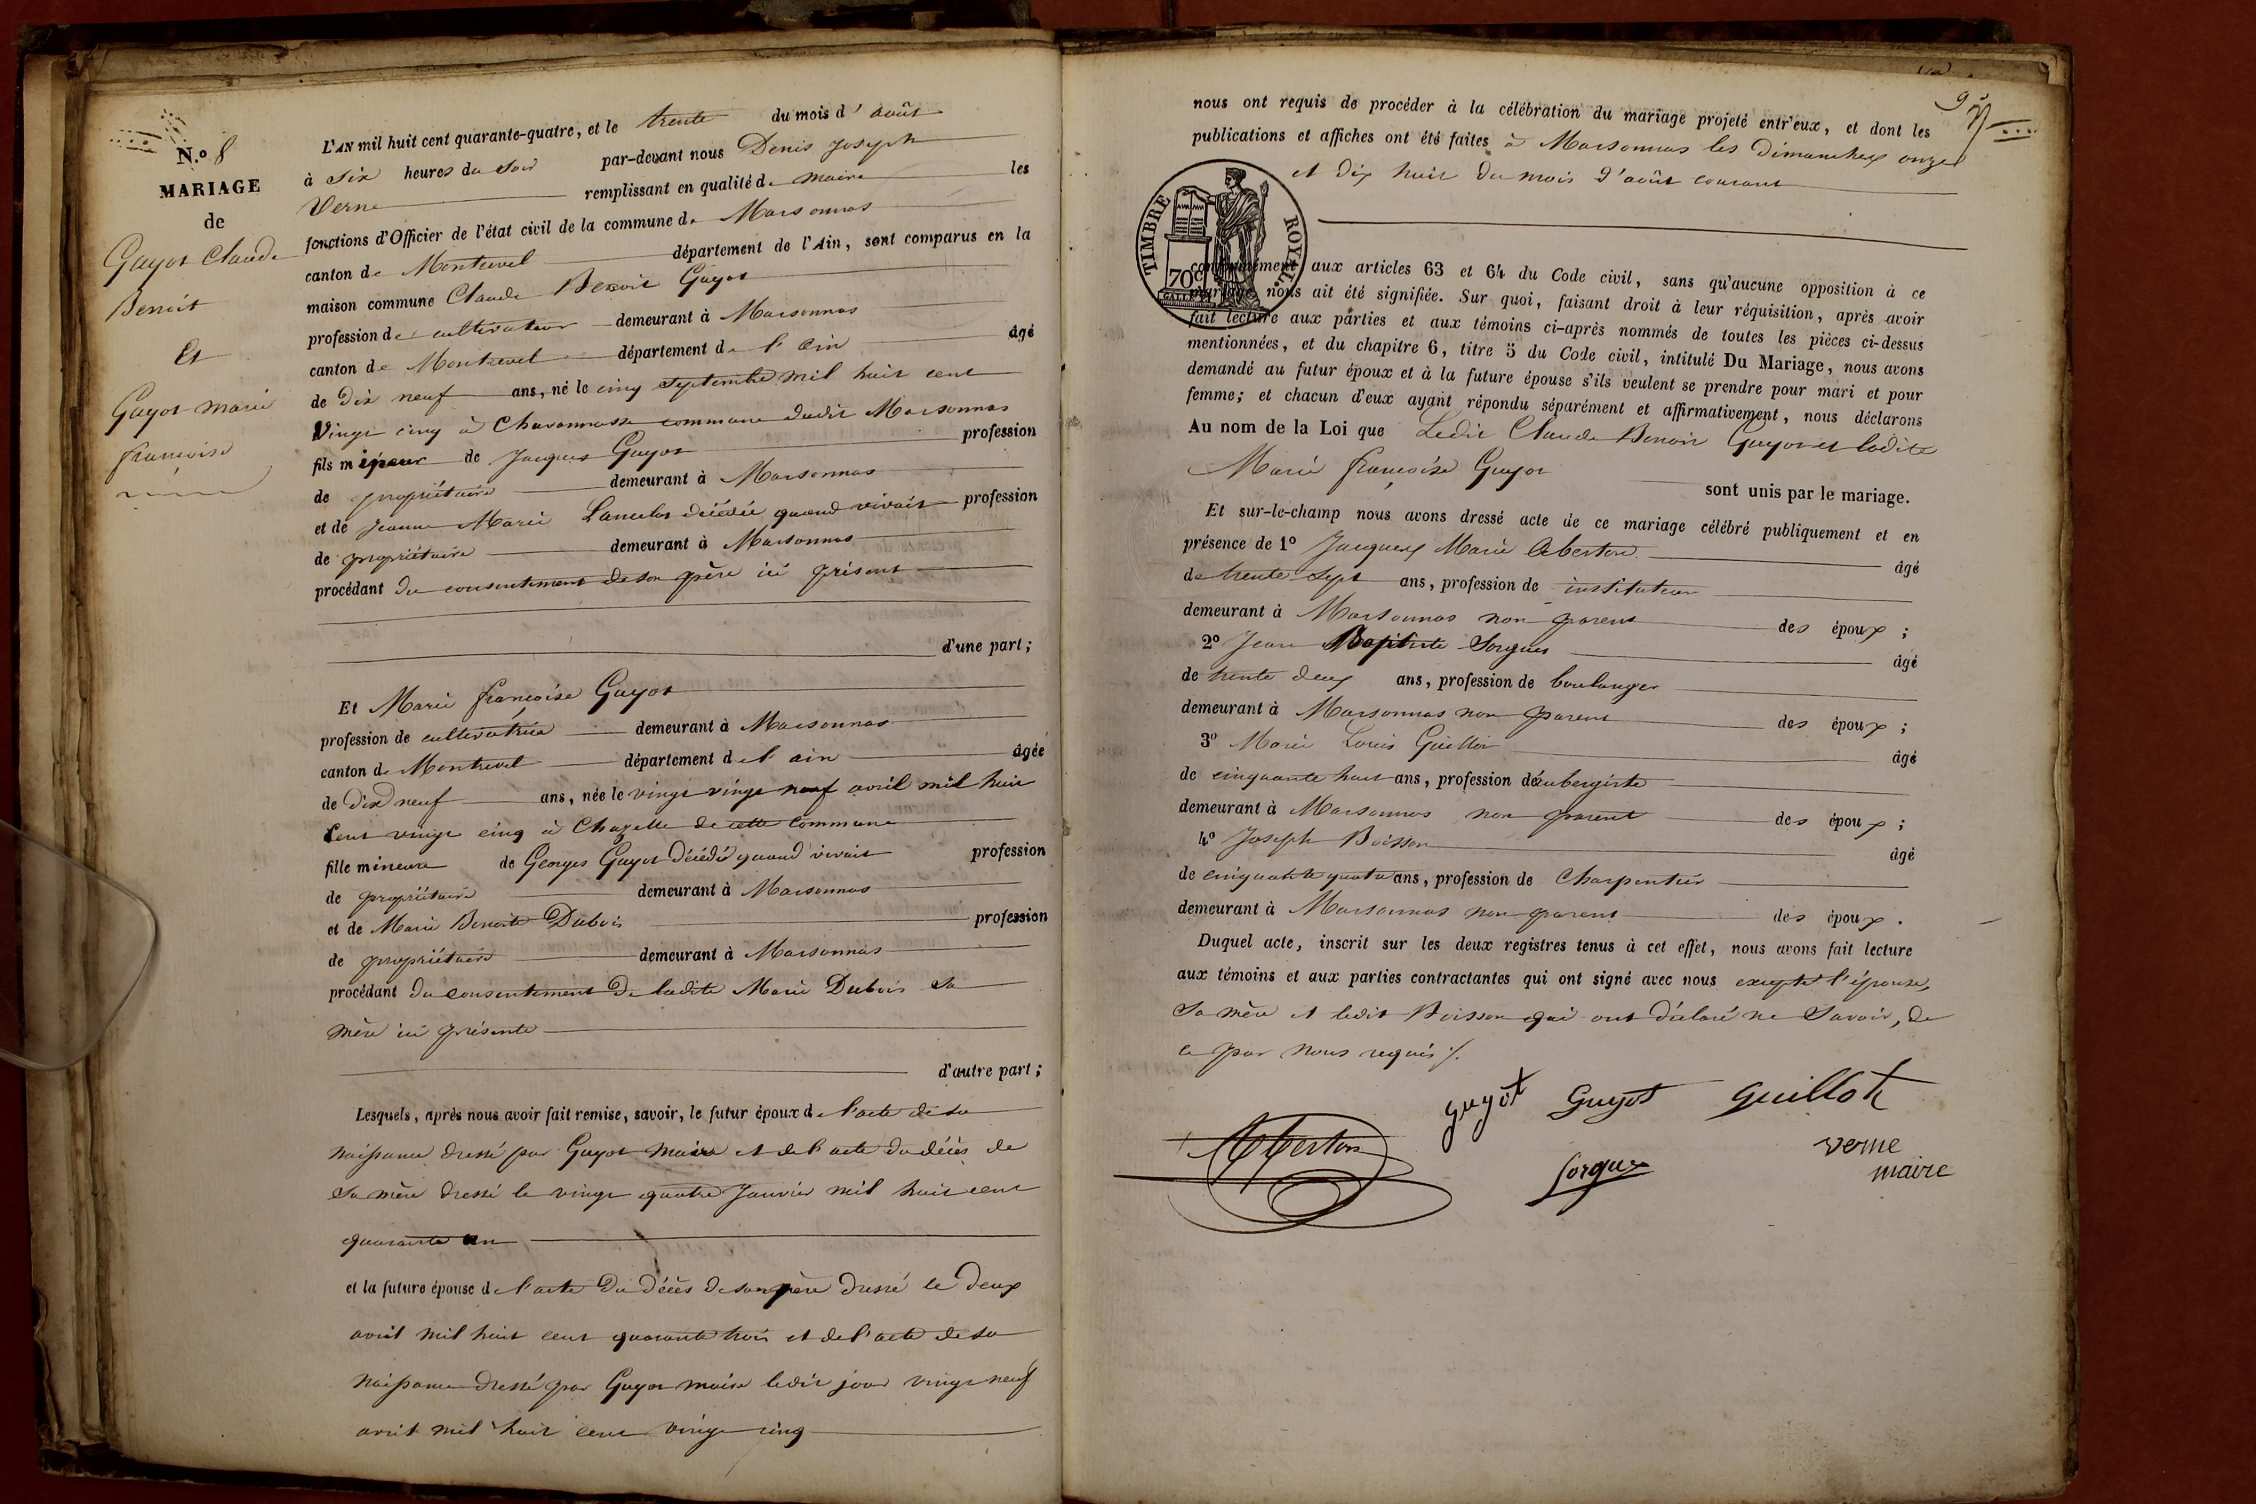 N.º 8
MARIAGE
de
Guyot Claude
Benoit
Et
Guyot Marie
françoise
L'AN mil huit cent quarante-quatre, et le trente du mois d'août
à Six heures du Soir par-devant nous Denis Joseph
Verne remplissant en qualité de maire les
fonctions d'Officier de l'état civil de la commune de Marsonnas
canton de Montrevel département de l'Ain, sont comparus en la
maison commune Claude Benoit Guyot
profession de cultivateur demeurant à Marsonnas
canton de Montrevel département de l'ain âgé
de Dix neuf ans, né le cinq Septembre mil huit cent
Vingt cinq à Chavannasse commune dudit Marsonnas
fils mineur de Jacques Guyot profession
de propriétaire demeurant à Marsonnas
et de Jeanne Marie Lancelot décédée quand vivait profession
de propriétaire demeurant à Marsonnas
procédant du consentement de son père ici présent
d'une part;
Et Marie françoise Guyot
profession de cultivatrice demeurant à Marsonnas
canton de Montrevel département de l'ain âgée
de Dix neuf ans, née le vingt vingt neuf avril mil huit
Cent vingt cinq à Chazelle de cette Commune
fille mineure de Georges Guyot Décédé quand vivait profession
de propriétaire demeurant à Marsonnas
et de Marie Benoite Dubois profession
de propriétaire demeurant à Marsonnas
procédant du consentement De ladite Marie Dubois Sa
mère ici présente
d'autre part;
Lesquels, après nous avoir fait remise, savoir, le futur époux de l'acte de sa
naissance dressé par Guyot maire et de l'acte du décès de
Sa mère dressé le vingt quatre Janvier mil huit cent
quarante un
et la future épouse de l'acte Du Décès de son père dressé le Deux
avril mil huit cent quarante trois et de l'acte de sa
naissance dressé par Guyot maire ledit jour vingt neuf
avril mil huit cent vingt cinq
nous ont requis de procéder à la célébration du mariage projeté entr'eux, et dont les
publications et affiches ont été faites à Marsonnas les Dimanches onze
et dix huit du mois d'août courant
TIMBRE ROYAL.
70c
conformément aux articles 63 et 64 du Code civil, sans qu'aucune opposition à ce
mariage nous ait été signifiée. Sur quoi, faisant droit à leur réquisition, après avoir
fait lecture aux parties et aux témoins ci-après nommés de toutes les pièces ci-dessus
mentionnées, et du chapitre 6, titre 5 du Code civil, intitulé Du Mariage, nous avons
demandé au futur époux et à la future épouse s'ils veulent se prendre pour mari et pour
femme; et chacun d'eux ayant répondu séparément et affirmativement, nous déclarons
Au nom de la Loi que Ledit Claude Benoit Guyot et ladite
Marie françoise Guyot
sont unis par le mariage.
Et sur-le-champ nous avons dressé acte de ce mariage célébré publiquement et en
présence de 1º Jacques Marie Aberton âgé
de trente-Sept ans, profession de instituteur
demeurant à Marsonnas non parent des époux;
2º Jean Baptiste Sorgues âgé
de trente deux ans, profession de boulanger
demeurant à Marsonnas non parent des époux;
3º Marie Louis Guillot âgé
de cinquante huit ans, profession d'aubergiste
demeurant à Marsonnas non parent des époux;
4º Joseph Boisson âgé
de cinquante quatre ans, profession de Charpentier
demeurant à Marsonnas non parent des époux.
Duquel acte, inscrit sur les deux registres tenus à cet effet, nous avons fait lecture
aux témoins et aux parties contractantes qui ont signé avec nous excepté l'épouse,
Sa mère et ledit Boisson qui ont déclaré ne Savoir, de
ce par nous requis ./.
guyot Guyot guillot
Aberton Sorgues verne
maire